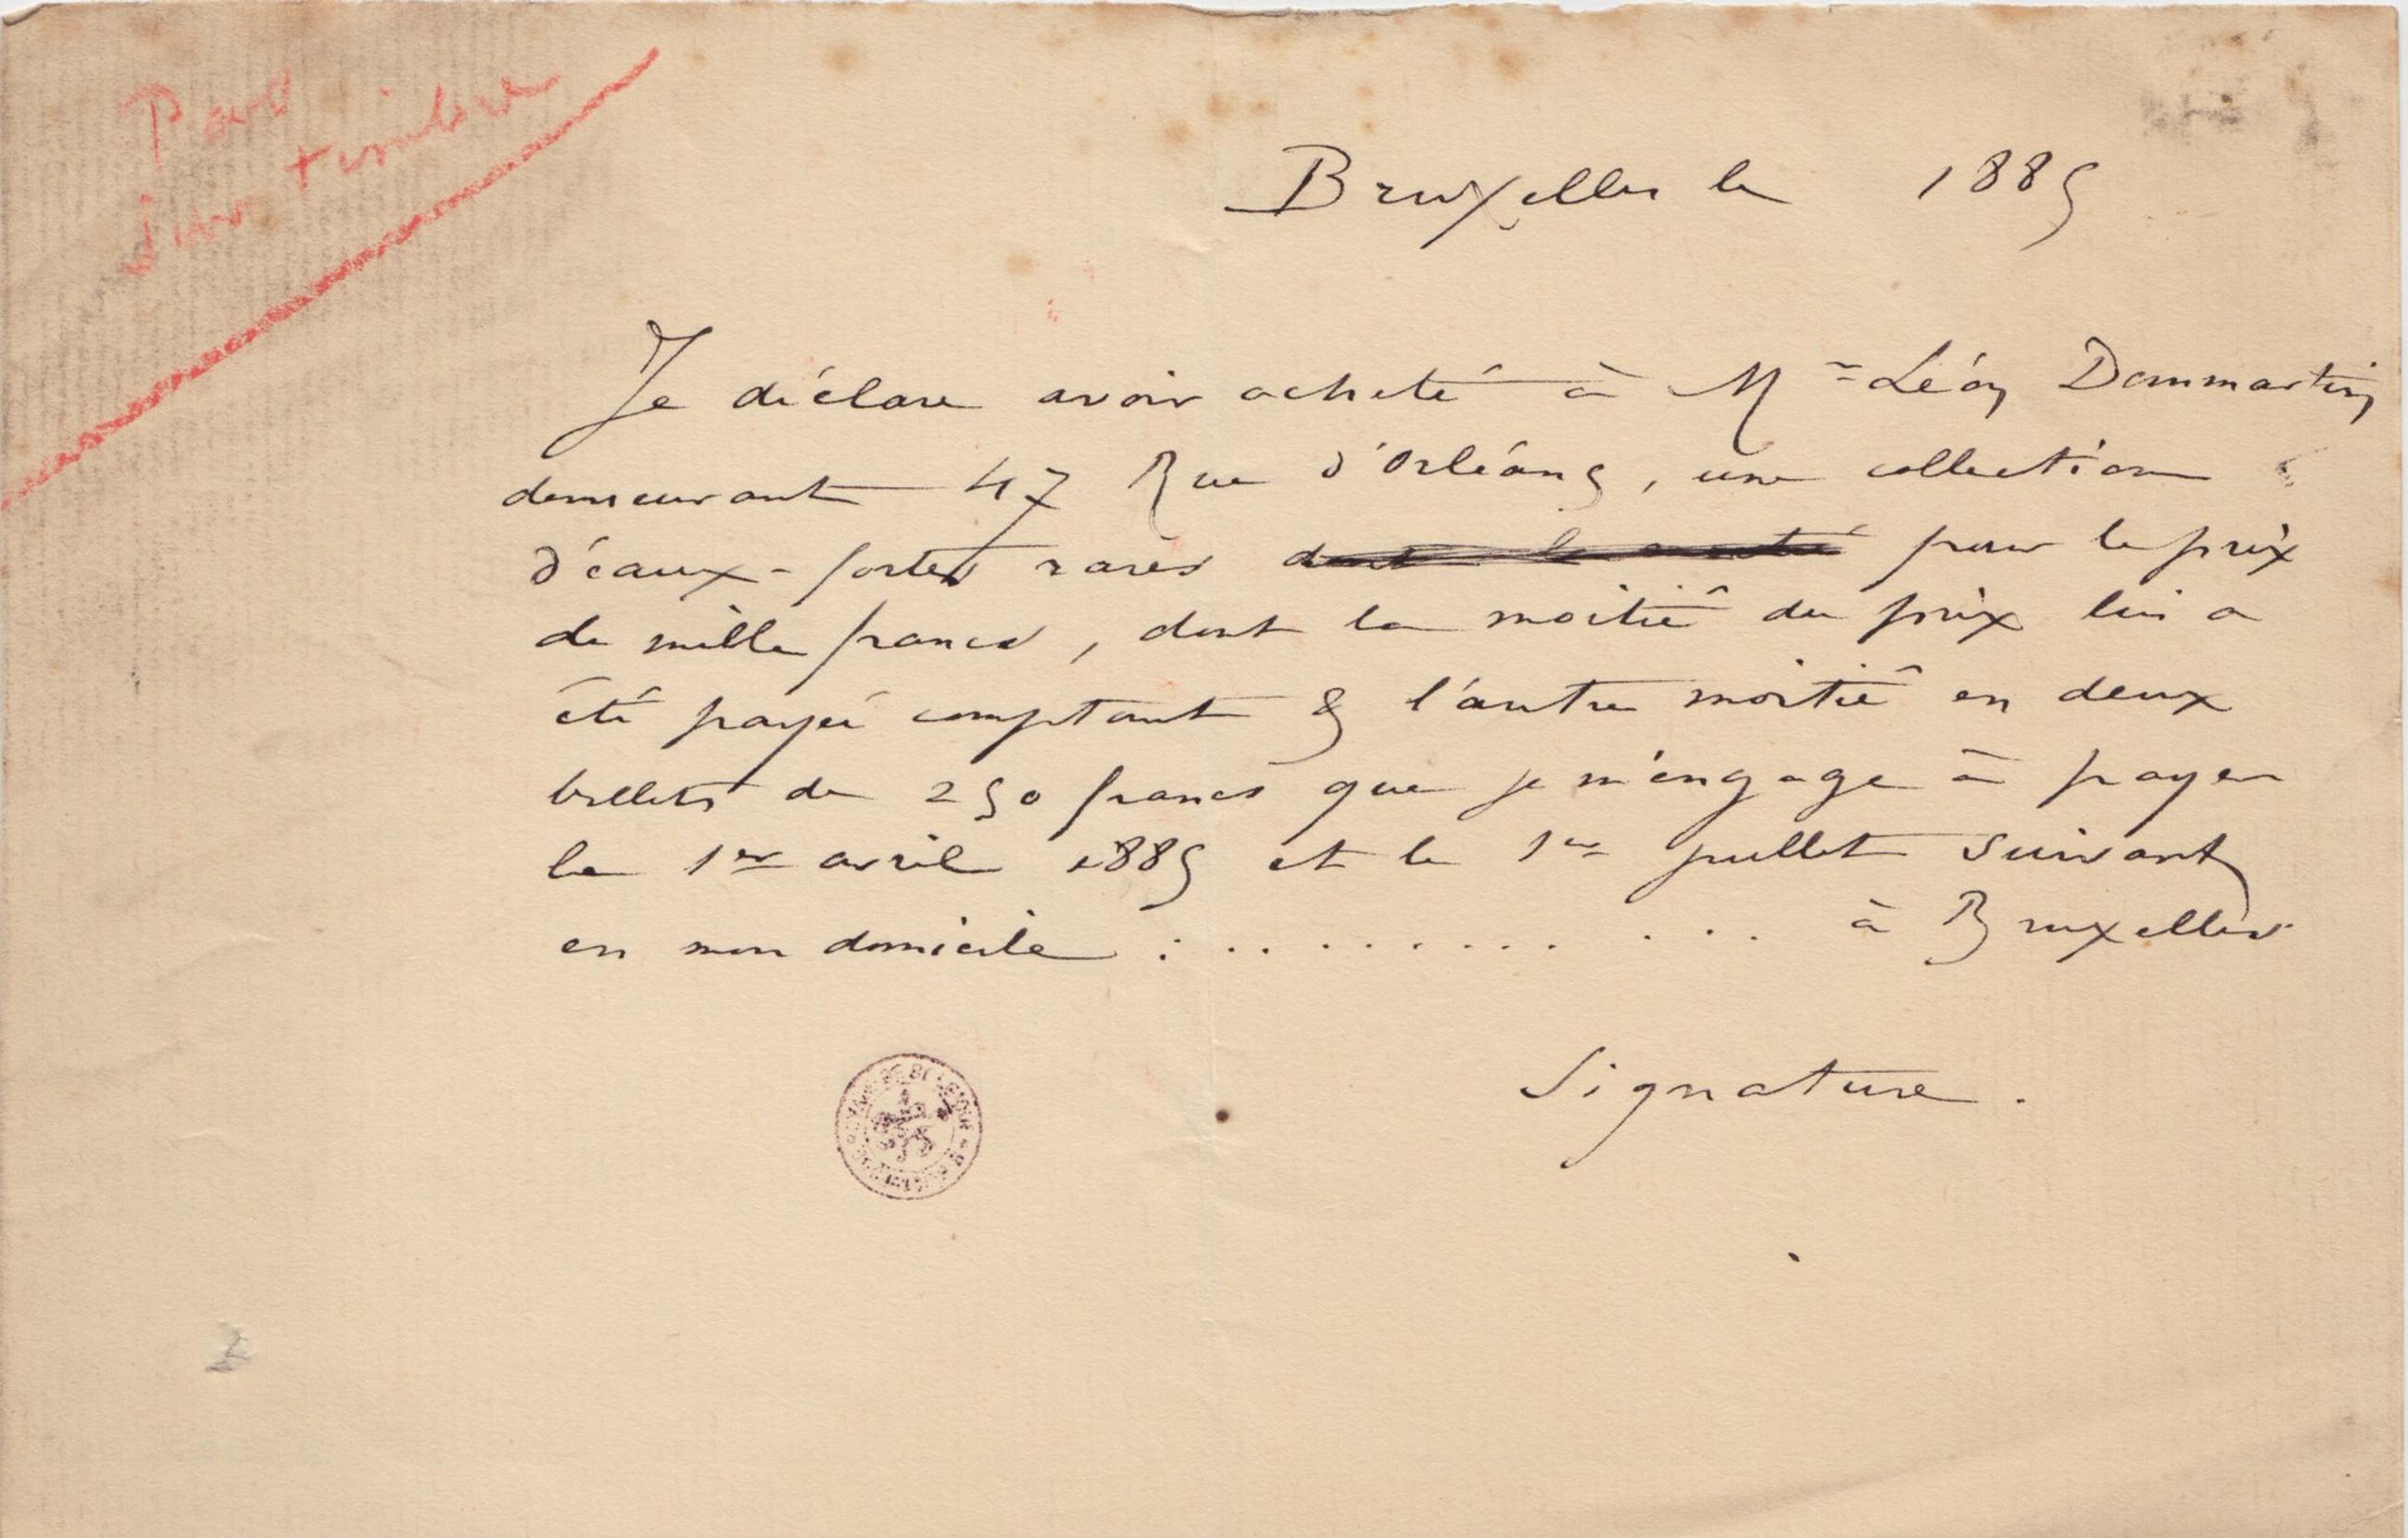 Pas
sur timbre
Bruxelles le 1885
Je déclare avoir acheté à Mr Léon Dommartin
demeurant 47 Rue d'Orléans, une collection
d'éaux-fortes rares dont la moitié pour le prix
de mille francs, dont la moitié du prix lui a
été payée comptant & l'autre moitié en deux
billets de 250 francs que je m'engage à payer
le 1er avril 1885 et le 1er juillet suivant
en mon domicile : . . . . . . . . . . . . à Bruxelles
Signature.